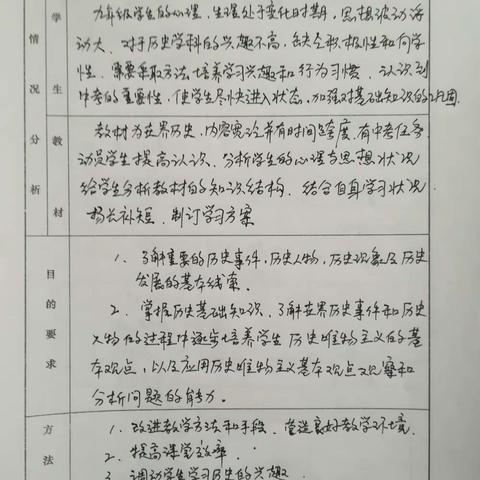 学生
情况分析
九年级学生的心理,生理处于变化时期,思想波动浮
动大,对于历史学科的兴趣不高,缺乏积极性和向学
性,需要采取方法,培养学习兴趣和行为习惯,认识到
中考的重要性,使学生尽快进入状态,加强对基础知识的巩固.
教材
教材为世界历史,内容要泛并有时间跨度,有中考任务
动员学生提高认识、分析学生的心理与思想状况
给学生分析教材的知识结构,结合自身学习状况
扬长补短,制订学习方案
目的要求
1、了解重要的历史事件,历史人物,历史现象及历史
发展的基本线索.
2、掌握历史基础知识、了解世界历史事件和历史
人物的过程中逐步培养学生历史唯物主义的基
本观点,以及应用历史唯物主义基本观点观察和
分析问题的能力.
方法
1、改进教学方法和手段,营造良好教学环境.
2、提高课堂效率.
3、调动学生学习历史的兴趣